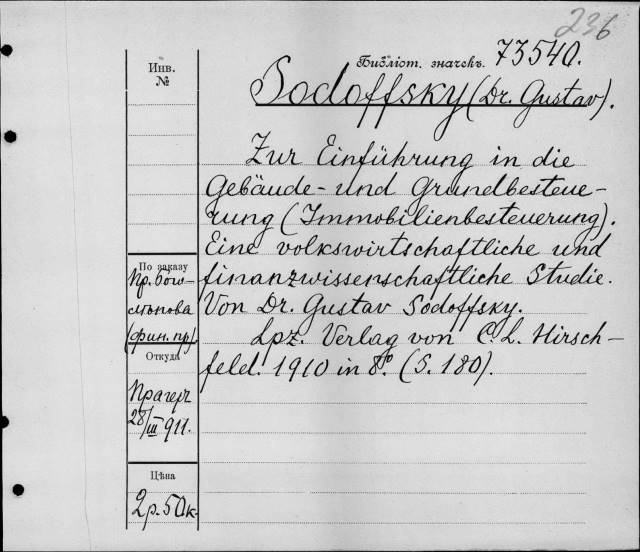 236
Библіот. значекъ. 73540.
Инв.
№
Sodoffsky (Dr. Gustav).
Zur Einführung in die
Gebäude- und Grundbesteue-
rung (Immobilienbesteuerung).
Eine volkswirtschaftliche und
finanzwissenschaftliche Studie.
Von Dr. Gustav Sodoffsky.
Lpz. Verlag von C. L. Hirsch-
feld. 1910 in 8° (S. 180).
По заказу
Пр. Бого-
лѣпова
(фин. пр)
Откуда
Прагеръ
28/III 911.
Цѣна
2р. 50к.